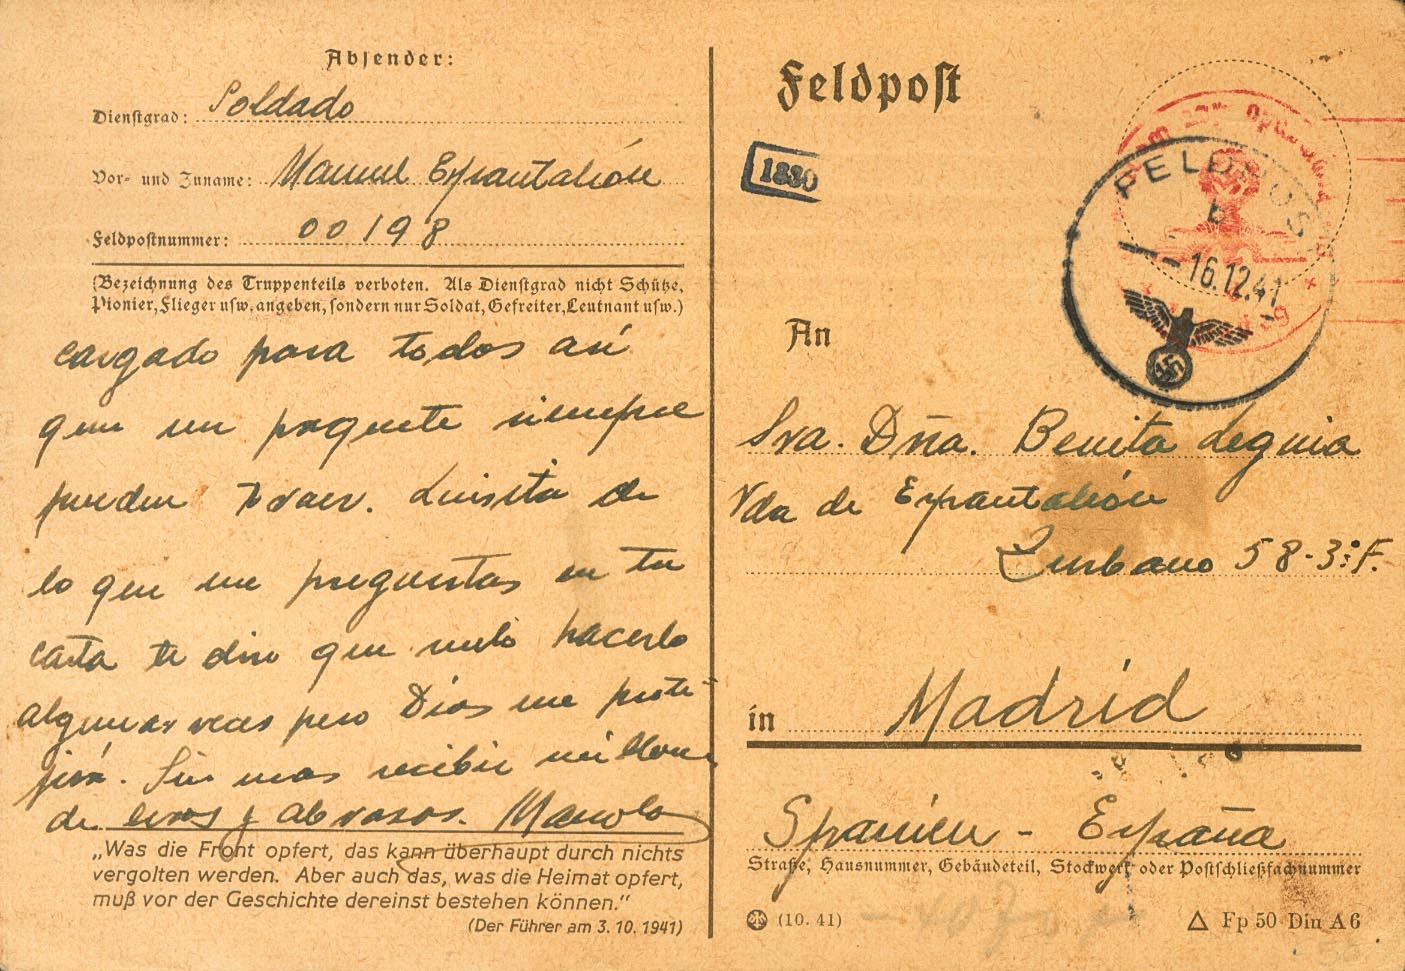 Absender:
Dienstgrad: Soldado
Vor- und Zuname: Manuel Espantaleón
Feldpostnummer: 00198
(Bezeichnung des Truppenteils verboten. Als Dienstgrad nicht Schütze,
Pionier, Flieger usw. angeben, sondern nur Soldat, Gefreiter, Leutnant usw.)
cargado para todos así
que un paquete siempre
pueden traer. Luisita de
lo que me preguntas en tu
carta te digo que suelo hacerlo
algunas veces pero Dios me prote-
jirá. Sin mas recibir millones
de besos y abrazos. Manolo
„Was die Front opfert, das kann überhaupt durch nichts
vergolten werden. Aber auch das, was die Heimat opfert,
muß vor der Geschichte dereinst bestehen können.“
(Der Führer am 3. 10. 1941)
Feldpost
1830
FELDPOST
b
16.12.41
An
Sra. Dña. Benita Leguia
Vda de Espantaleón
Zurbano 58-3º F.
in Madrid
Spanien - España
Straße, Hausnummer, Gebäudeteil, Stockwerk oder Postschließfachnummer
(10. 41)
Fp 50 Din A 6